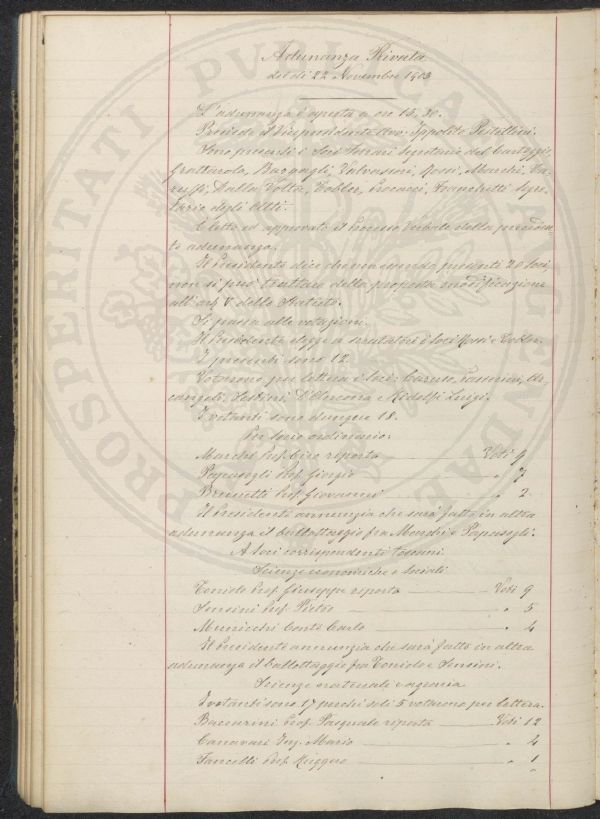 Adunanza Privata
del dì 22 Novembre 1903
L'adunanza è aperta a ore 15,30.
Presiede il Vicepresidente Avv. Ippolito Pestellini.
Sono presenti i Soci Ferrari Segretario del Carteggio,
Grattarola, Bargagli, Valvassori, Rossi, Marchi, Ca-
ruffi, Dalla Volta, Tobler, Franchetti Segre-
tario degli Atti.
È letto ed approvato il Processo Verbale della preceden-
te adunanza.
Il Presidente dice che non essendo presenti 20 Soci
non si può trattare della proposta modificazione
all'art. V dello Statuto.
Si passa alle votazioni.
Il Presidente elegge a scrutatori i Soci Rossi e Tobler.
I presenti sono 12.
Votarono per lettera i Soci: Caruso, Passerini, Ar-
cangeli, Sestini, D'Ancona e Ridolfi Luigi.
I votanti sono dunque 18.
Per Socio ordinario:
Marchi Prof. Ciro riporta Voti 9
Papasogli Prof. Giorgio " 7
Brunetti Prof. Giovanni " 2
Il Presidente annunzia che sarà fatto in altra
adunanza il ballottaggio fra Marchi e Papasogli.
A Soci corrispondenti Toscani
Scienze economiche e sociali
Toniolo Prof. Giuseppe riporta Voti 9
Sensini Prof. Pietro " 5
Municchi Conte Carlo " 4
Il Presidente annunzia che sarà fatto in altra
adunanza il ballottaggio fra Toniolo e Sensini.
Scienze naturali e agraria
I votanti sono 17 perchè soli 5 votarono per lettera.
Baccarini Prof. Pasquale riporta Voti 12
Canavari Ing. Mario " 4
Fancelli Prof. Ruggero " 1
PROSPERITATI PUBLICAE AUGENDAE